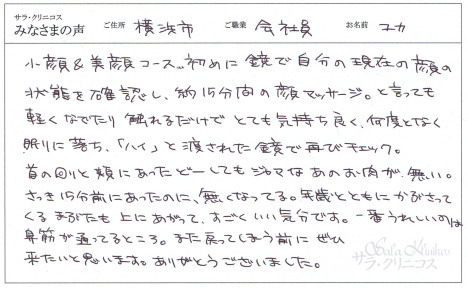 サラ・クリニコス
みなさまの声 ご住所 横浜市 ご職業 会社員 お名前 ユカ
小顔&美顔コース…初めに鏡で自分の現在の顔の
状態を確認し、約15分間の顔マッサージ。と言っても
軽くなでたり触れるだけでとても気持ち良く、何度となく
眠りに落ち、「ハイ」と渡された鏡で再びチェック。
首の回りと頬にあったどーしてもジャマなあのお肉が、無い。
さっき15分前にあったのに、無くなってる。年齢とともにかぶさって
くるまぶたも上にあがって、すごくいい気分です。一番うれしいのは
鼻筋が通ってるところ。また戻ってしまう前にぜひ
来たいと思います。ありがとうございました。
Sala Klinikos
サラ・クリニコス